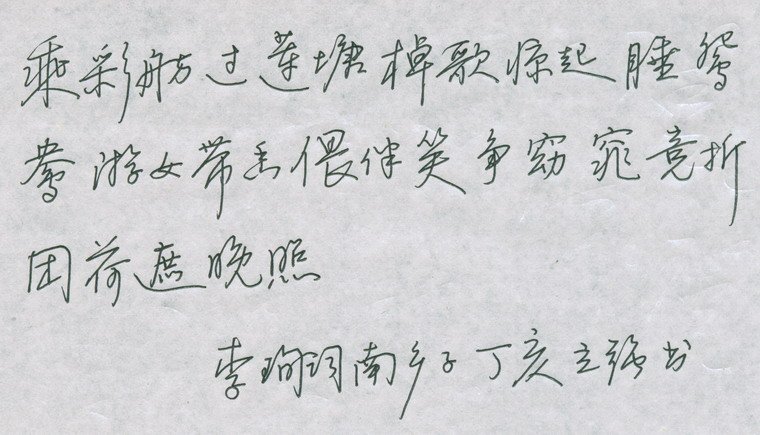 乘彩舫过莲塘棹歌惊起睡鸳
鸯游女带香偎伴笑争窈窕竞折
团荷遮晚照
李珣词南乡子丁亥立强书